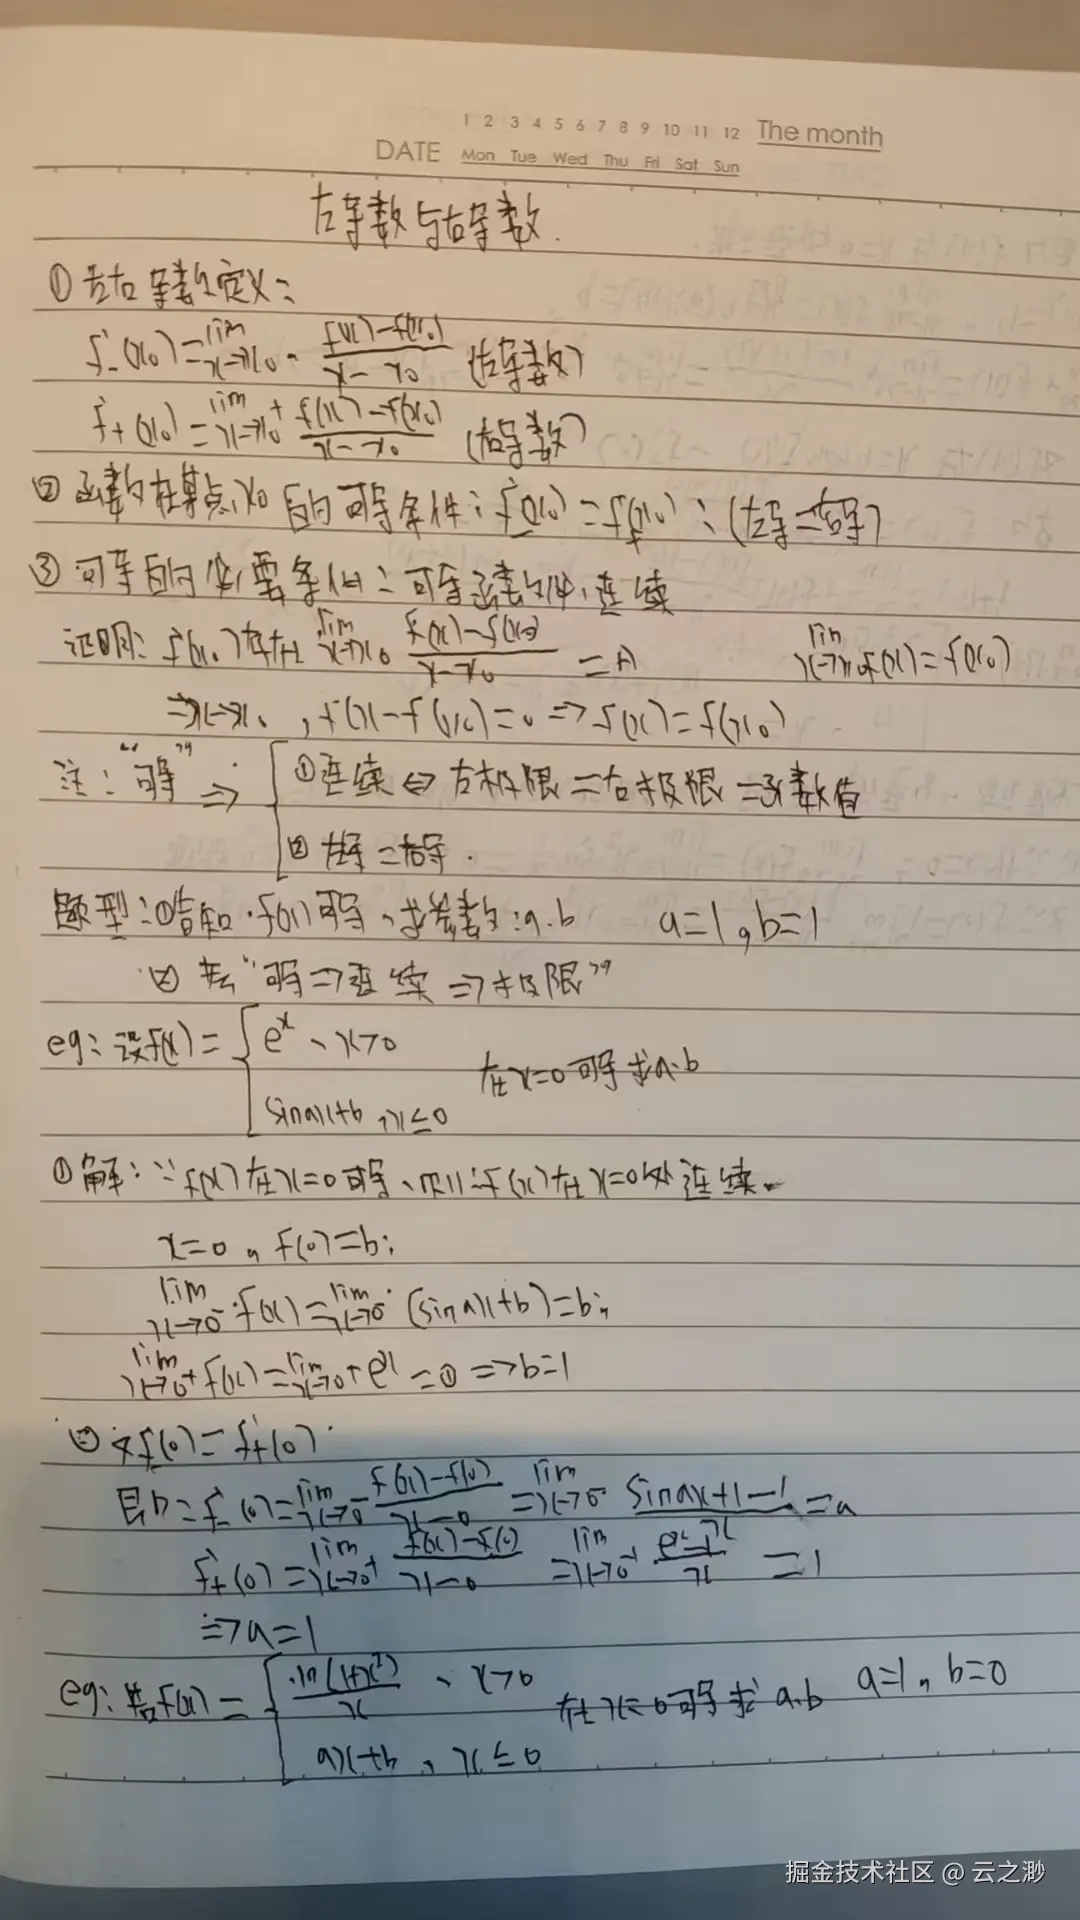 1 2 3 4 5 6 7 8 9 10 11 12 The month
DATE Mon Tue Wed Thu Fri Sat Sun
左导数与右导数.
① 左右导数定义:
f'₋(x₀)=lim x→x₀⁻ (f(x)-f(x₀))/(x-x₀) (左导数)
f'₊(x₀)=lim x→x₀⁺ (f(x)-f(x₀))/(x-x₀) (右导数)
② 函数在某点x₀ 的可导条件: f'₋(x₀)=f'₊(x₀): (左导=右导)
③ 可导的必要条件: 可导函数必连续
证明: f'(x₀)存在 lim x→x₀ (f(x)-f(x₀))/(x-x₀) =A lim x→x₀ f(x)=f(x₀)
⇒x→x₀, f(x)-f(x₀)=0⇒f(x)=f(x₀)
注:“可导”⇒ { ①连续⇔左极限=右极限=函数值
②左导=右导.
题型:①告知.f(x)可导、求参数:a.b a=1,b=1
② 去“可导⇒连续⇒极限”
eg: 设f(x)= { eˣ、x>0
sinax+b ,x≤0 在x=0可导求a.b
①解:∵f(x)在x=0可导、则∴f(x)在x=0处连续.
x=0, f(0)=b;
lim x→0⁻ f(x)=lim x→0⁻ (sinax+b)=b;
lim x→0⁺ f(x)=lim x→0⁺ eˣ =① ⇒b=1
② 又f'₋(0)=f'₊(0).
即:f'₋(0)=lim x→0⁻ (f(x)-f(0))/(x-0) =lim x→0⁻ (sinax+1-1)/ =a
f'₊(0)=lim x→0⁺ (f(x)-f(0))/(x-0) =lim x→0⁺ (eˣ-1)/x =1
⇒a=1
eg: 若f(x)= { ln(1+x²)/x 、x>0
ax+b 、x≤0 在x=0可导求a.b a=1, b=0
掘金技术社区 @ 云之渺